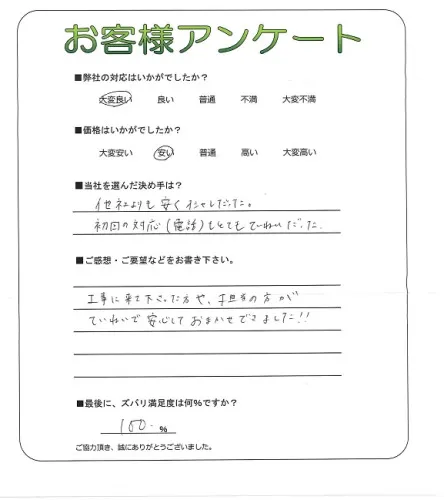 お客様アンケート
■弊社の対応はいかがでしたか？
大変良い 良い 普通 不満 大変不満
■価格はいかがでしたか？
大変安い 安い 普通 高い 大変高い
■当社を選んだ決め手は？
他社よりも安く
初回の対応（電話）もとてもていねいだった.
■ご感想・ご要望などをお書き下さい。
工事に来て下さった方や、担当の方が
ていねいで安心しておまかせできました!!
■最後に、ズバリ満足度は何％ですか？
100. ％
ご協力頂き、誠にありがとうございました。